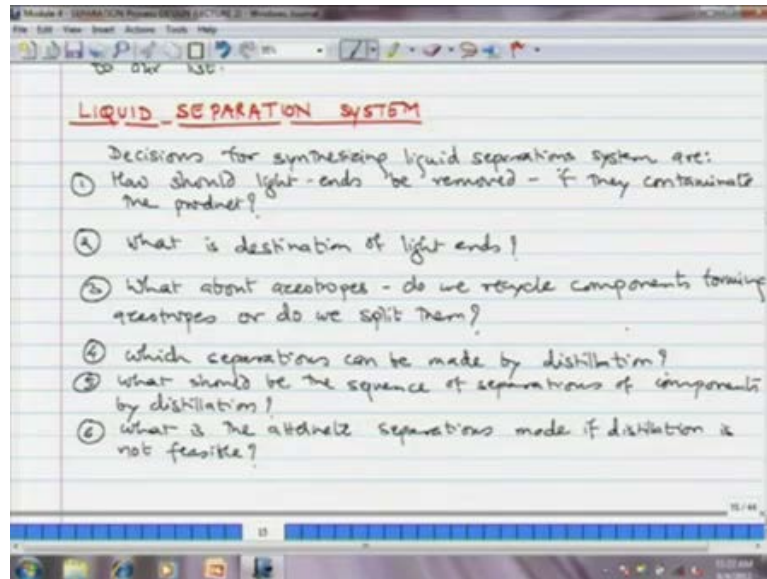 Module 4 - SEPARATION Process DESIGN (LECTURE 2) - Windows Journal
File Edit View Insert Actions Tools Help
to our list.
LIQUID SEPARATION SYSTEM
Decisions for synthesizing liquid separations system are:
① How should light-ends be removed - if they contaminate
the product?
② What is destination of light ends?
③ What about azeotropes - do we recycle components forming
azeotropes or do we split them?
④ Which separations can be made by distillation?
⑤ What should be the sequence of separations of components
by distillation?
⑥ What is the alternate separations made if distillation is
not feasible?
15